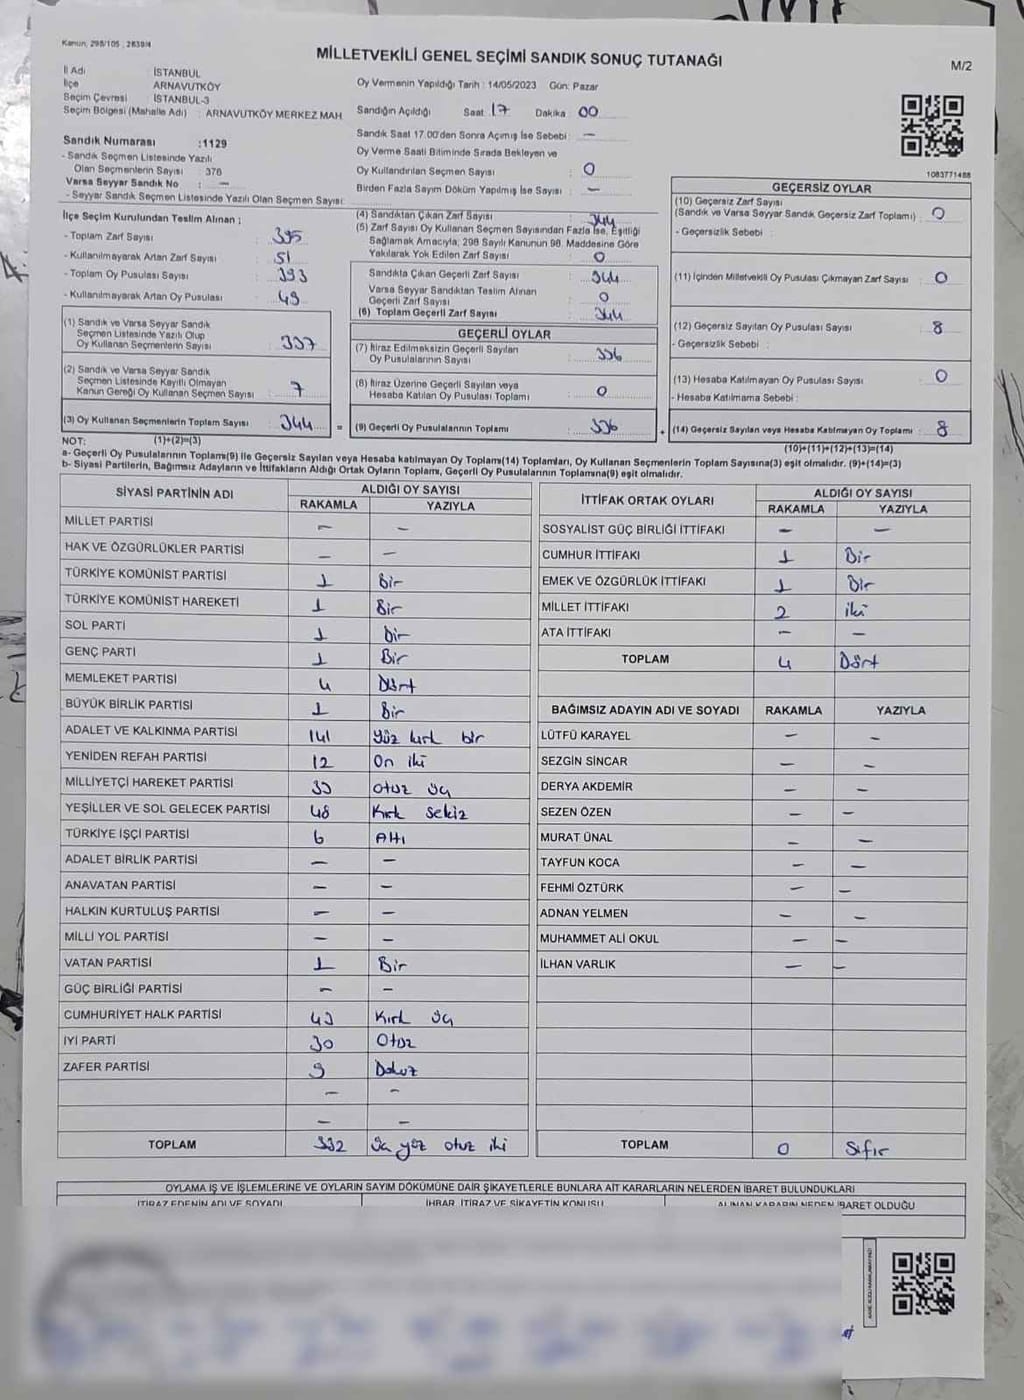 Kanun, 298/105 , 2839/4
MİLLETVEKİLİ GENEL SEÇİMİ SANDIK SONUÇ TUTANAĞI
M/2
İl Adı İSTANBUL
İlçe ARNAVUTKÖY
Seçim Çevresi : İSTANBUL-3
Seçim Bölgesi (Mahalle Adı) : ARNAVUTKÖY MERKEZ MAH
Oy Vermenin Yapıldığı Tarih : 14/05/2023 Gün: Pazar
Sandığın Açıldığı Saat 17 Dakika 00
Sandık Saat 17.00'den Sonra Açımış İse Sebebi : —
Oy Verme Saati Bitiminde Sırada Bekleyen ve
Oy Kullandırılan Seçmen Sayısı : 0
Birden Fazla Sayım Döküm Yapılmış İse Sayısı : —
Sandık Numarası :1129
- Sandık Seçmen Listesinde Yazılı
Olan Seçmenlerin Sayısı 376
Varsa Seyyar Sandık No : —
- Seyyar Sandık Seçmen Listesinde Yazılı Olan Seçmen Sayısı:
1083771488
İlçe Seçim Kurulundan Teslim Alınan ;
- Toplam Zarf Sayısı : 395
- Kullanılmayarak Artan Zarf Sayısı : 51
- Toplam Oy Pusulası Sayısı : 393
- Kullanılmayarak Artan Oy Pusulası : 49
(1) Sandık ve Varsa Seyyar Sandık
Seçmen Listesinde Yazılı Olup
Oy Kullanan Seçmenlerin Sayısı : 337
(2) Sandık ve Varsa Seyyar Sandık
Seçmen Listesinde Kayıtlı Olmayan
Kanun Gereği Oy Kullanan Seçmen Sayısı : 7
(3) Oy Kullanan Seçmenlerin Toplam Sayısı : 344
(4) Sandıktan Çıkan Zarf Sayısı : 344
(5) Zarf Sayısı Oy Kullanan Seçmen Sayısından Fazla İse, Eşitliği
Sağlamak Amacıyla; 298 Sayılı Kanunun 98. Maddesine Göre
Yakılarak Yok Edilen Zarf Sayısı : 0
Sandıkta Çıkan Geçerli Zarf Sayısı : 344
Varsa Seyyar Sandıktan Teslim Alınan
Geçerli Zarf Sayısı : 0
(6) Toplam Geçerli Zarf Sayısı : 344
GEÇERLİ OYLAR
(7) İtiraz Edilmeksizin Geçerli Sayılan
Oy Pusulalarının Sayısı : 336
(8) İtiraz Üzerine Geçerli Sayılan veya
Hesaba Katılan Oy Pusulası Toplamı : 0
= (9) Geçerli Oy Pusulalarının Toplamı : 336
GEÇERSİZ OYLAR
(10) Geçersiz Zarf Sayısı
(Sandık ve Varsa Seyyar Sandık Geçersiz Zarf Toplamı) : 0
- Geçersizlik Sebebi :
(11) İçinden Milletvekili Oy Pusulası Çıkmayan Zarf Sayısı : 0
(12) Geçersiz Sayılan Oy Pusulası Sayısı : 8
- Geçersizlik Sebebi :
(13) Hesaba Katılmayan Oy Pusulası Sayısı : 0
- Hesaba Katılmama Sebebi :
+ (14) Geçersiz Sayılan veya Hesaba Katılmayan Oy Toplamı : 8
NOT: (1)+(2)=(3)
(10)+(11)+(12)+(13)=(14)
a- Geçerli Oy Pusulalarının Toplamı(9) İle Geçersiz Sayılan veya Hesaba katılmayan Oy Toplamı(14) Toplamları, Oy Kullanan Seçmenlerin Toplam Sayısına(3) eşit olmalıdır. (9)+(14)=(3)
b- Siyasi Partilerin, Bağımsız Adayların ve İttifakların Aldığı Ortak Oyların Toplamı, Geçerli Oy Pusulalarının Toplamına(9) eşit olmalıdır.
SİYASİ PARTİNİN ADI ALDIĞI OY SAYISI
RAKAMLA YAZIYLA
MİLLET PARTİSİ — —
HAK VE ÖZGÜRLÜKLER PARTİSİ — —
TÜRKİYE KOMÜNİST PARTİSİ 1 Bir
TÜRKİYE KOMÜNİST HAREKETİ 1 Bir
SOL PARTİ 1 Bir
GENÇ PARTİ 1 Bir
MEMLEKET PARTİSİ 4 Dört
BÜYÜK BİRLİK PARTİSİ 1 Bir
ADALET VE KALKINMA PARTİSİ 141 Yüz kırk bir
YENİDEN REFAH PARTİSİ 12 On iki
MİLLİYETÇİ HAREKET PARTİSİ 33 Otuz üç
YEŞİLLER VE SOL GELECEK PARTİSİ 48 Kırk sekiz
TÜRKİYE İŞÇİ PARTİSİ 6 Altı
ADALET BİRLİK PARTİSİ — —
ANAVATAN PARTİSİ — —
HALKIN KURTULUŞ PARTİSİ — —
MİLLİ YOL PARTİSİ — —
VATAN PARTİSİ 1 Bir
GÜÇ BİRLİĞİ PARTİSİ — —
CUMHURİYET HALK PARTİSİ 43 Kırk üç
İYİ PARTİ 30 Otuz
ZAFER PARTİSİ 9 Dokuz
— —
— —
TOPLAM 332 Üç yüz otuz iki
İTTİFAK ORTAK OYLARI ALDIĞI OY SAYISI
RAKAMLA YAZIYLA
SOSYALİST GÜÇ BİRLİĞİ İTTİFAKI — —
CUMHUR İTTİFAKI 1 Bir
EMEK VE ÖZGÜRLÜK İTTİFAKI 1 Bir
MİLLET İTTİFAKI 2 iki
ATA İTTİFAKI — —
TOPLAM 4 Dört
BAĞIMSIZ ADAYIN ADI VE SOYADI RAKAMLA YAZIYLA
LÜTFÜ KARAYEL — —
SEZGİN SİNCAR — —
DERYA AKDEMİR — —
SEZEN ÖZEN — —
MURAT ÜNAL — —
TAYFUN KOCA — —
FEHMİ ÖZTÜRK — —
ADNAN YELMEN — —
MUHAMMET ALİ OKUL — —
İLHAN VARLIK — —
TOPLAM 0 Sıfır
OYLAMA İŞ VE İŞLEMLERİNE VE OYLARIN SAYIM DÖKÜMÜNE DAİR ŞİKAYETLERLE BUNLARA AİT KARARLARIN NELERDEN İBARET BULUNDUKLARI
İTİRAZ EDENİN ADI VE SOYADI İHBAR, İTİRAZ VE ŞİKAYETİN KONUSU ALINAN KARARIN NEDEN İBARET OLDUĞU